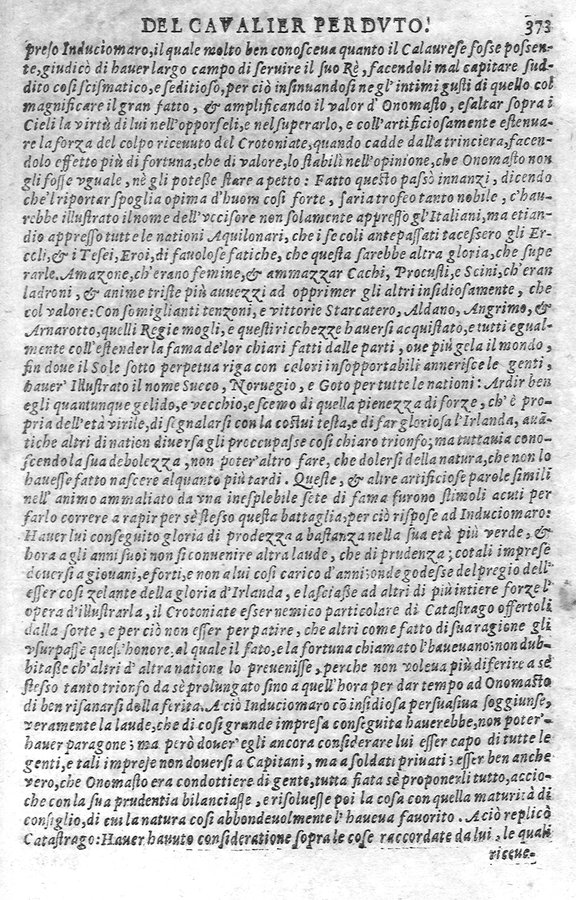 DEL CAVALIER PERDVTO. 373
preso Induciomaro, il quale molto ben conosceua quanto il Calaurese fosse possen-
te, giudicò di hauer largo campo di seruire il suo Rè, facendoli mal capitare sud-
dito così scismatico, e seditioso, per ciò insinuandosi negl'intimi gusti di quello col
magnificare il gran fatto, & amplificando il valor d'Onomasto, esaltar sopra i
Cieli la virtù di lui nell'opporseli, e nel superarlo, e coll'artificiosamente estenua-
re la forza del colpo riceuuto del Crotoniate, quando cadde dalla trinciera, facen-
dolo effetto più di fortuna, che di valore, lo stabilì nell'opinione, che Onomasto non
gli fosse vguale, nè gli potesse stare a petto: Fatto questo passò innanzi, dicendo
che'l riportar spoglia opima d'huom così forte, faria trofeo tanto nobile, c'hau-
rebbe illustrato il nome dell'vccisore non solamente appresso gl'Italiani, ma etian-
dio appresso tutte le nationi Aquilonari, che i se coli antepassati tacessero gli Er-
coli, & i Tesei, Eroi, di fauolose fatiche, che questa sarebbe altra gloria, che supe
rarle. Amazone, ch'erano femine, & ammazzar Cachi, Procusti, e Scini, ch'eran
ladroni, & anime triste più auuezzi ad opprimer gli altri insidiosamente, che
col valore: Con somiglianti tenzoni, e vittorie Starcatero, Aldano, Angrimo, &
Arnarotto, quelli Regie mogli, e questi ricchezze hauersi acquistato, e tutti egual-
mente coll'estender la fama de'lor chiari fatti dalle parti, oue più gela il mondo,
fin doue il Sole sotto perpetua riga con celori insopportabili annerisce le genti,
hauer Illustrato il nome Sueco, Noruegio, e Goto per tutte le nationi: Ardir ben
egli quantunque gelido, e vecchio, e scemo di quella pienezza di forze, ch'è pro-
pria dell'età virile, di segnalarsi con la costui testa, e di far gloriosa l'Irlanda, auā-
tiche altri di nation diuersa gli preoccupasse così chiaro trionfo; ma tuttauia cono-
scendo la sua debolezza, non poter'altro fare, che dolersi della natura, che non lo
hauesse fatto nascere alquanto più tardi. Queste, & altre artificiose parole simili
nell'animo ammaliato da vna inesplebile sete di fama furono stimoli acuti per
farlo correre a rapir per sè stesso questa battaglia; per ciò rispose ad Induciomaro:
Hauer lui conseguito gloria di prodezza a bastanza nella sua età più verde, &
hora agli anni suoi non si conuenire altra laude, che di prudenza; cotali imprese
douersi a giouani, e forti, e non a lui così carico d'anni; onde godesse del pregio dell'
esser così zelante della gloria d'Irlanda, e lasciasse ad altri di più intiere forze l'
opera d'illustrarla, il Crotoniate esser nemico particolare di Catastrago offertoli
dalla sorte, e per ciò non esser per patire, che altri come fatto di sua ragione gli
vsurpasse quest'honore, al quale il fato, e la fortuna chiamato l'haueuano; non dub-
bitasse ch'altri d'altra natione lo preuenisse, perche non voleua più diferire a sè
stesso tanto trionfo da sè prolungato sino a quell'hora per dar tempo ad Onomasto
di ben risanarsi della ferita. A ciò Induciomaro cō insidiosa persuasiua soggiunse,
veramente la laude, che di così grande impresa conseguita hauerebbe, non poter'
hauer paragone; ma però douer'egli ancora considerare lui esser capo di tutte le
genti, e tali imprese non douersi a Capitani, ma a soldati priuati; esser ben anche
vero, che Onomasto era condottiero di gente, tutta fiata sè proponerli tutto, accio-
che con la sua prudentia bilanciasse, e risoluesse poi la cosa con quella maturità di
consiglio, di cui la natura così abbondeuolmente l'haueua fauorito. A ciò replicò
Catastrago: Hauer hauuto consideratione sopra le cose raccordate da lui, le quali
riceue-